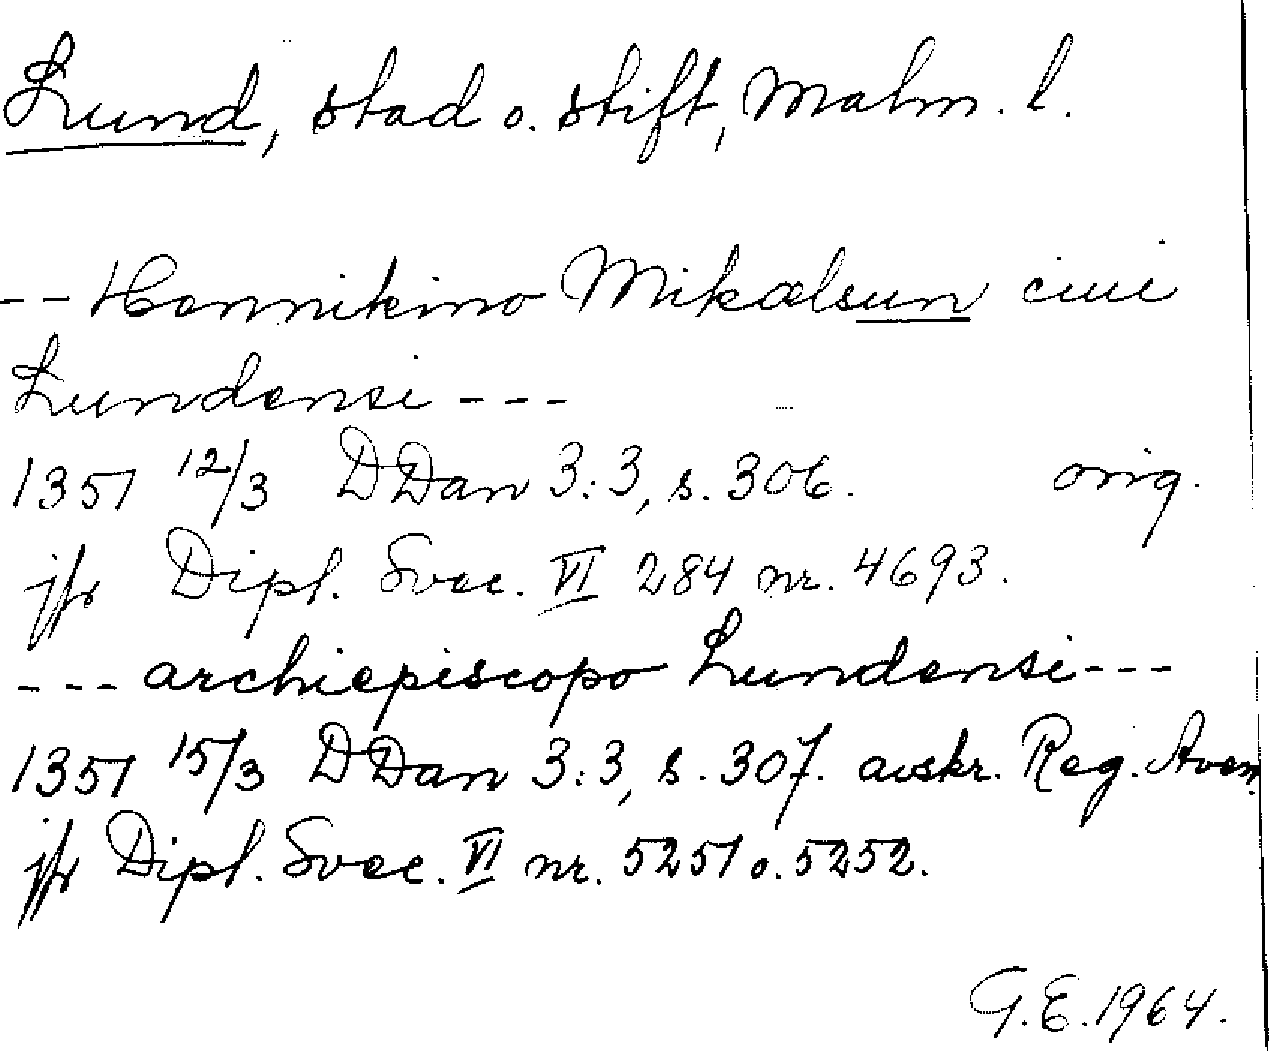 Lund, stad o. stift, Malm. l.
-- Hennikino Mikælsun ciui
Lundensi ---
1351 12/3 DDan 3:3, s. 306. orig.
jfr Dipl. Svec. VI 284 nr. 4693.
--- archiepiscopo Lundensi ---
1351 15/3 DDan 3:3, s. 307. avskr. Reg. Aven.
jfr Dipl. Svec. VI nr. 5251 o. 5252.
G.E. 1964.